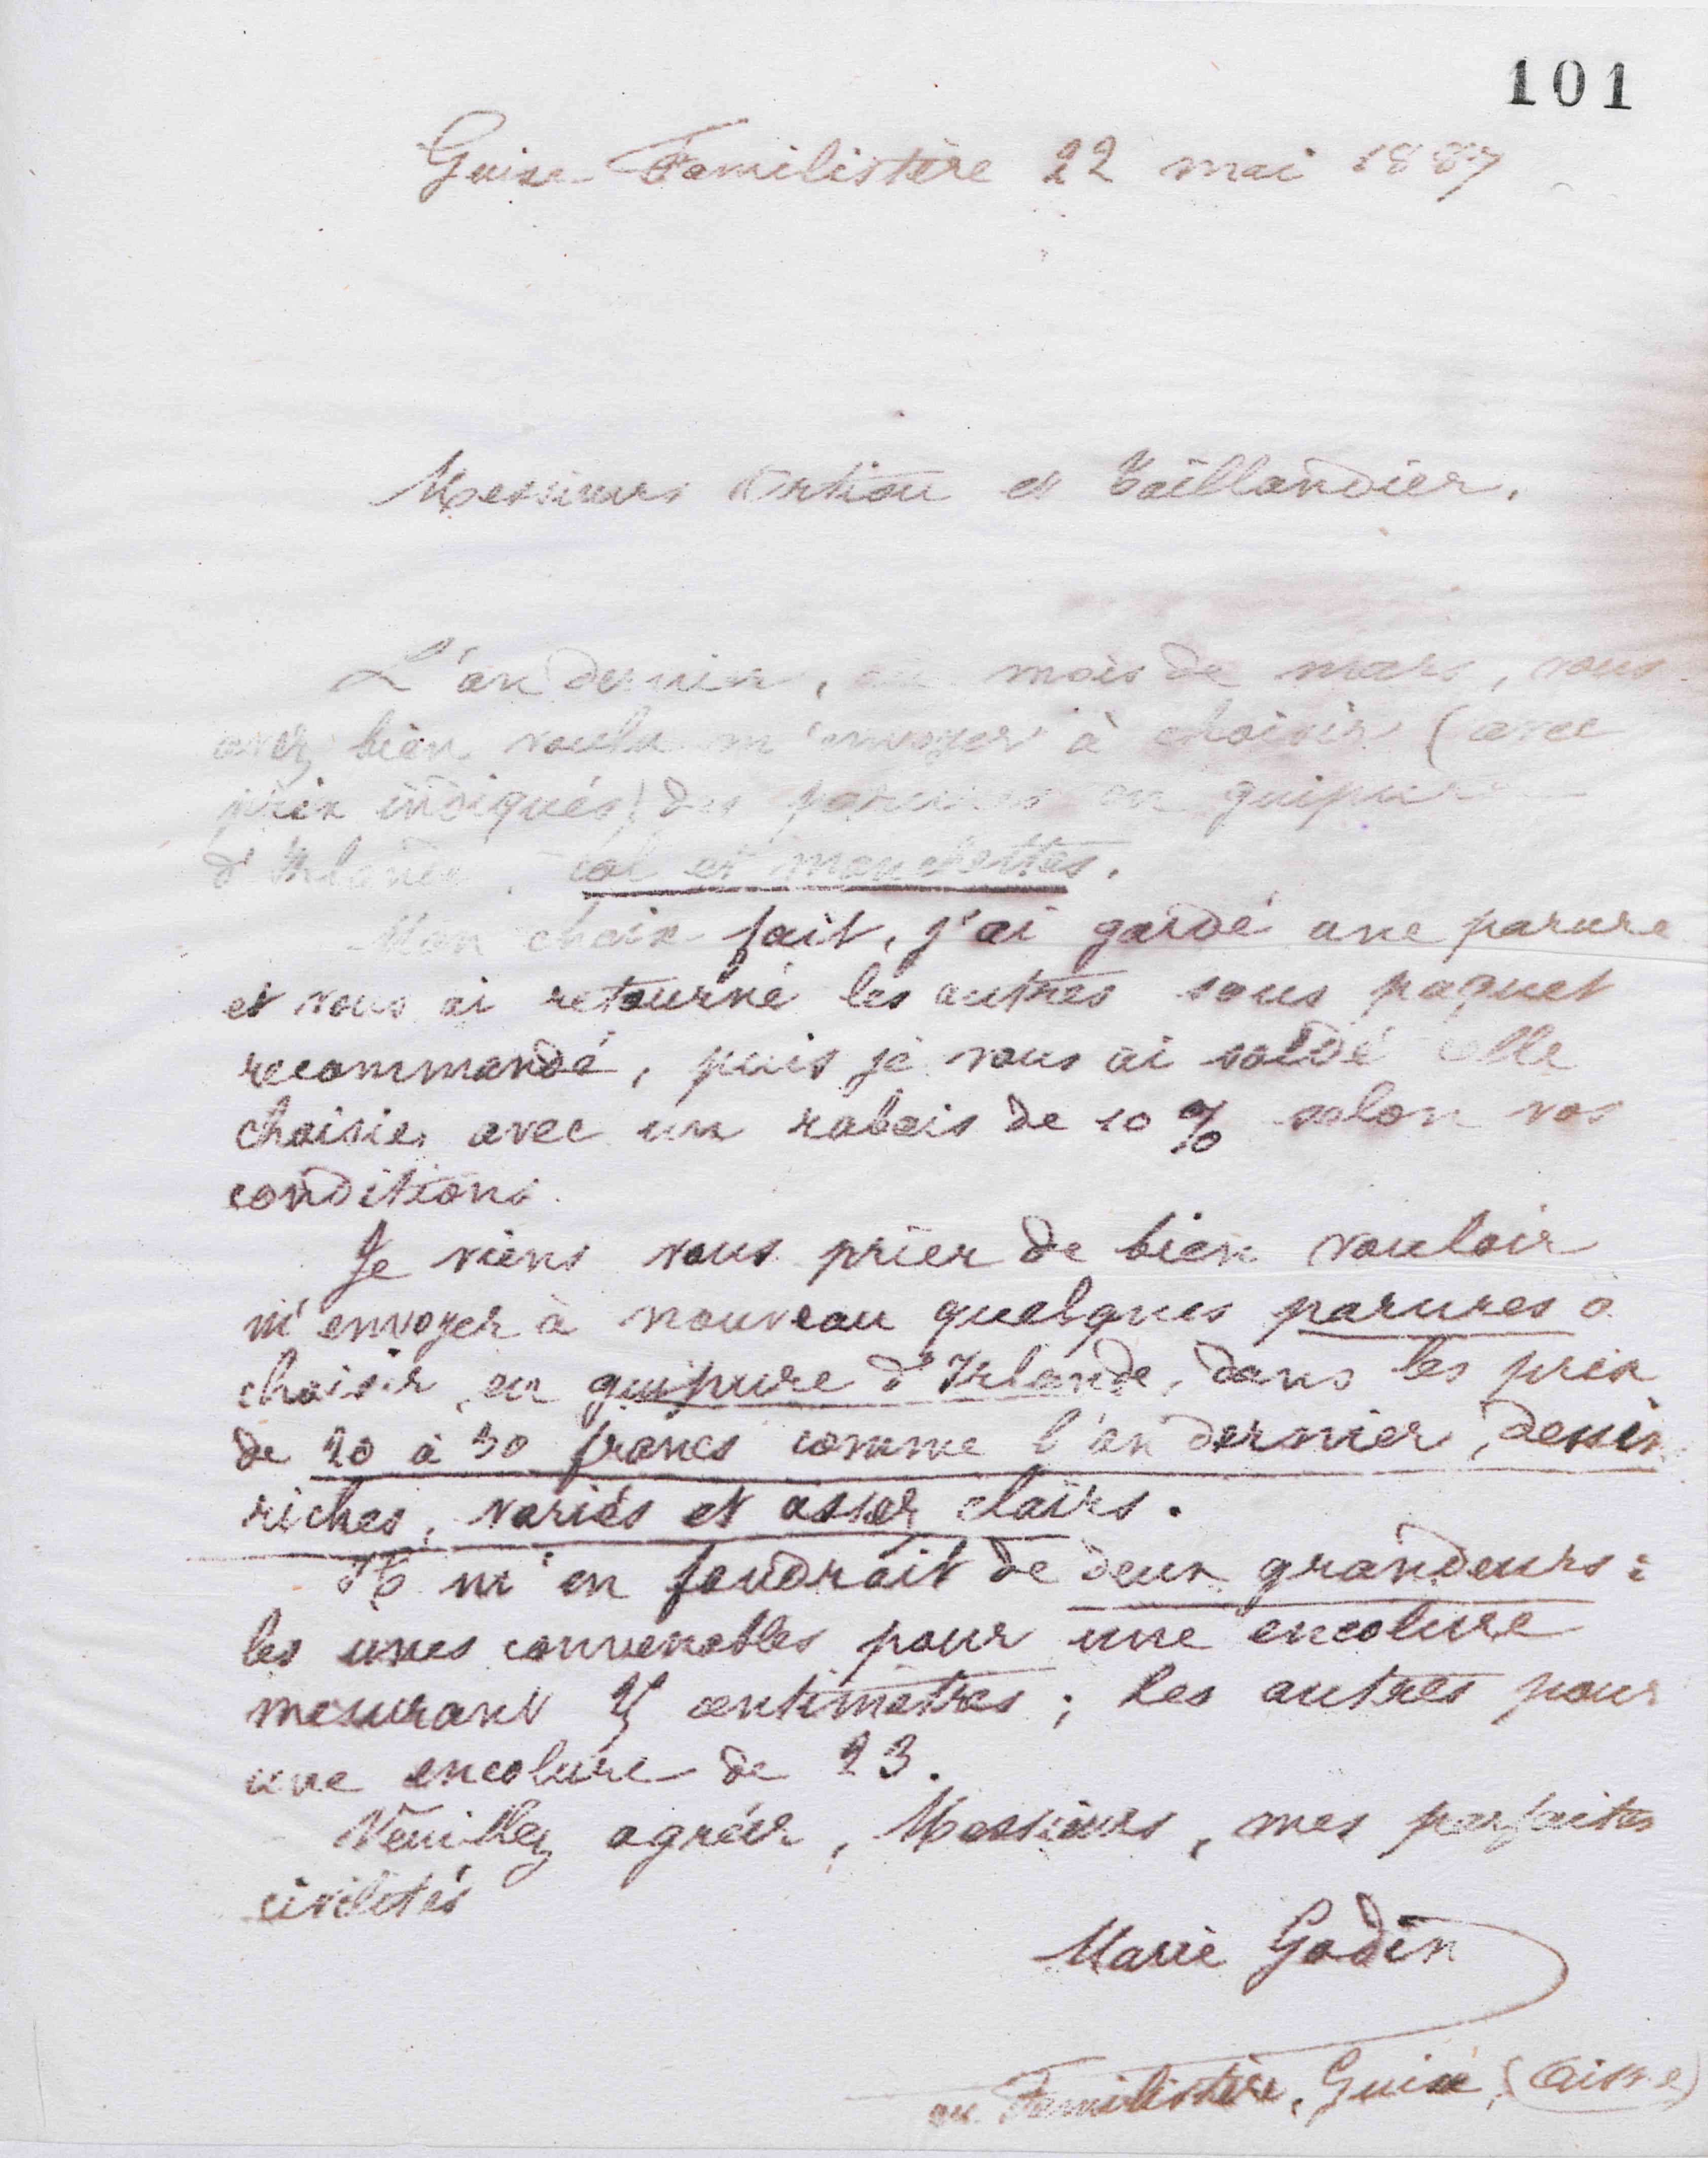 101
Guise-Familistère 22 mai 1887
Messieurs et Taillandier.
L'an dernier, au mois de mars, vous
avez bien voulu m'envoyer à choisir (avec
prix indiqués) des parures en guipure
d'Irlande : col et manchettes.
Mon choix fait, j'ai gardé une parure
et vous ai retourné les autres sous paquet
recommandé, puis je vous ai soldé celle
choisie, avec un rabais de 10 % selon vos
conditions.
Je viens vous prier de bien vouloir
m'envoyer à nouveau quelques parures à
choisir en guipure d'Irlande, dans les prix
de 20 à 30 francs comme l'an dernier, dessins
riches, variés et assez clairs.
Il m'en faudrait de deux grandeurs :
les unes convenables pour une encolure
mesurant centimètres ; les autres pour
une encolure de 23.
Veuillez agréer, Messieurs, mes parfaites
civilités
Marie Godin
au Familistère, Guise, (Aisne)